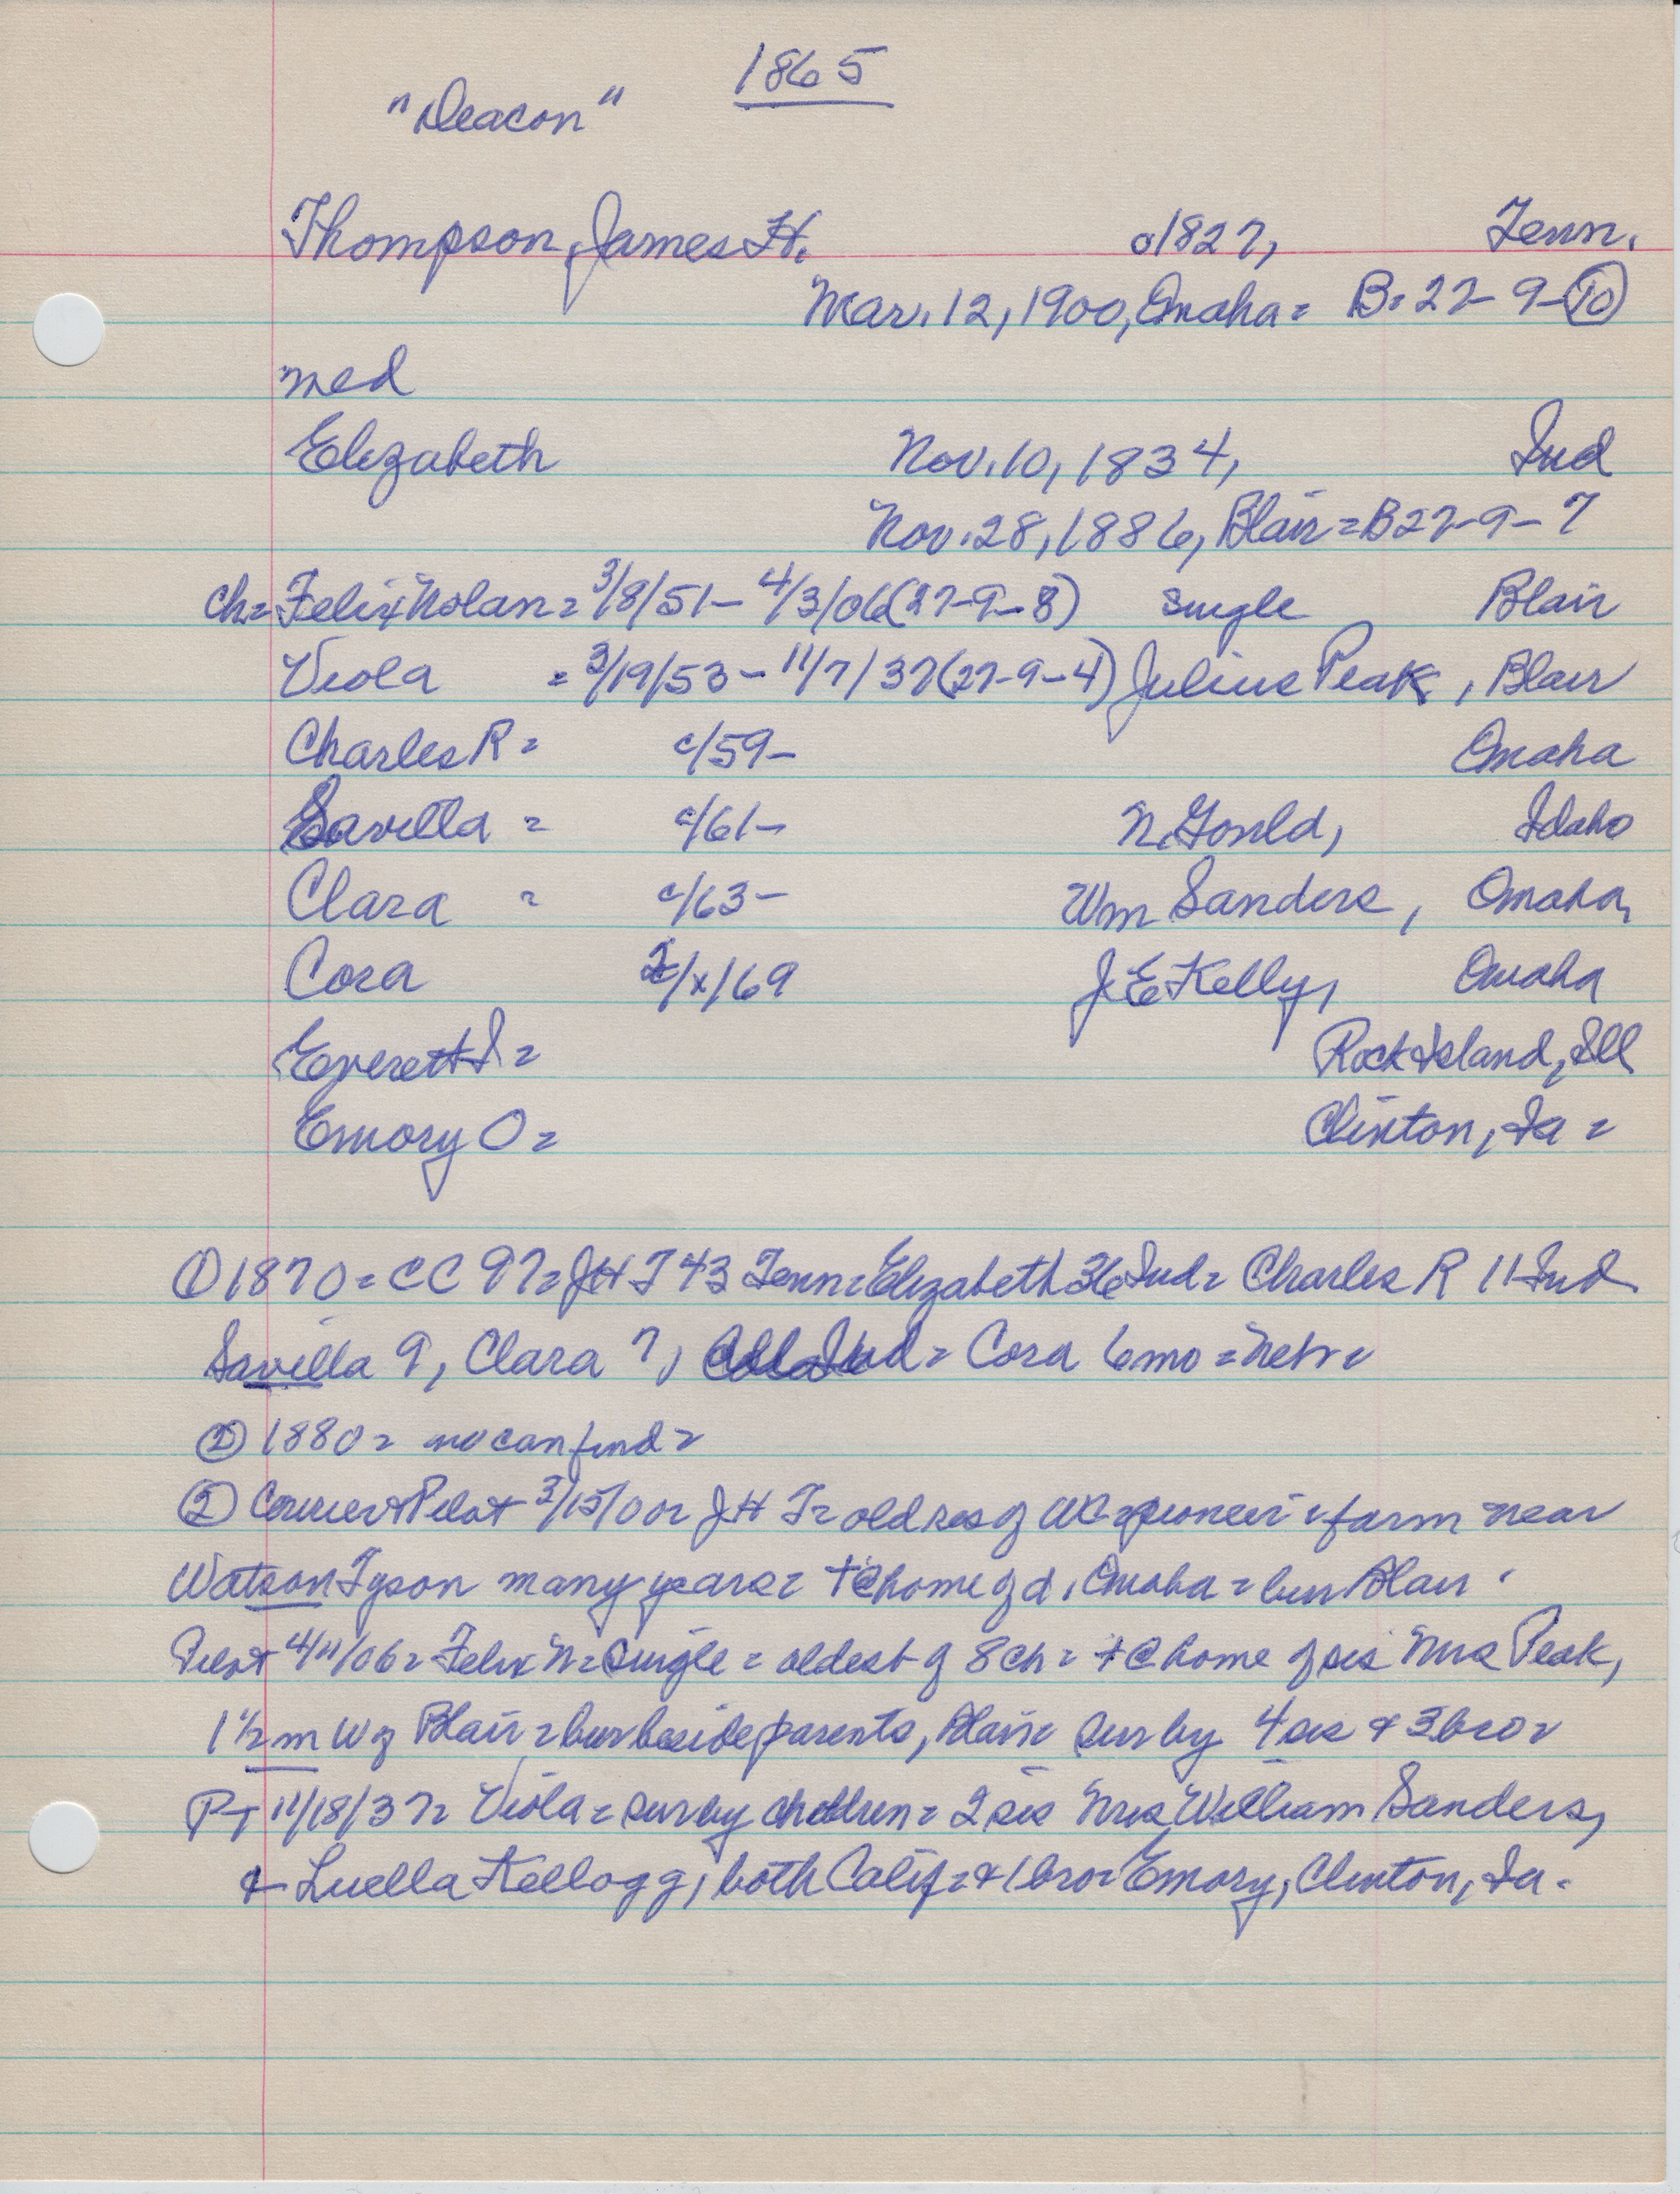 1865
"Deacon"
Thompson, James H. c1827, Tenn.
Mar. 12, 1900, Omaha = B. 27-9-10
med
Elizabeth Nov. 10, 1834, Ind
Nov. 28, 1886, Blair = B27-9-7
ch = Felix Nolan = 3/8/51 - 4/3/06 (27-9-8) single Blair
Viola = 3/19/53 - 11/7/37 (27-9-4) Julius Peak, Blair
Charles R = c/59- Omaha
Savilla = c/61- N. Gould, Idaho
Clara = c/63- Wm Sanders, Omaha,
Cora /x/69 J. E Kelly, Omaha
Everett I = Rock Island, Ill
Emory O = Clinton, Ia =
① 1870 = CC 97 = JHT 43 Tenn = Elizabeth 36 Ind = Charles R 11 Ind
Savilla 9, Clara 7, Ind = Cora 6 mo = Nebr =
② 1880 = no can find =
② Courier + Pilot 3/15/00 = JHT = old res of WC = pioneer = farm near
Watson Tyson many years = + @ home of d, Omaha = bur Blair.
Pilot 4/11/06 = Felix N = single = oldest of 8 ch = + @ home of sis Mrs Peak,
1 1/2 m W of Blair = bur beside parents, Blair = sur by 4 sis + 3 bro =
PT 11/18/37 = Viola = sur by children = 2 sis Mrs William Sanders,
+ Luella Kellogg, both Calif = + 1 bro = Emory, Clinton, Ia.